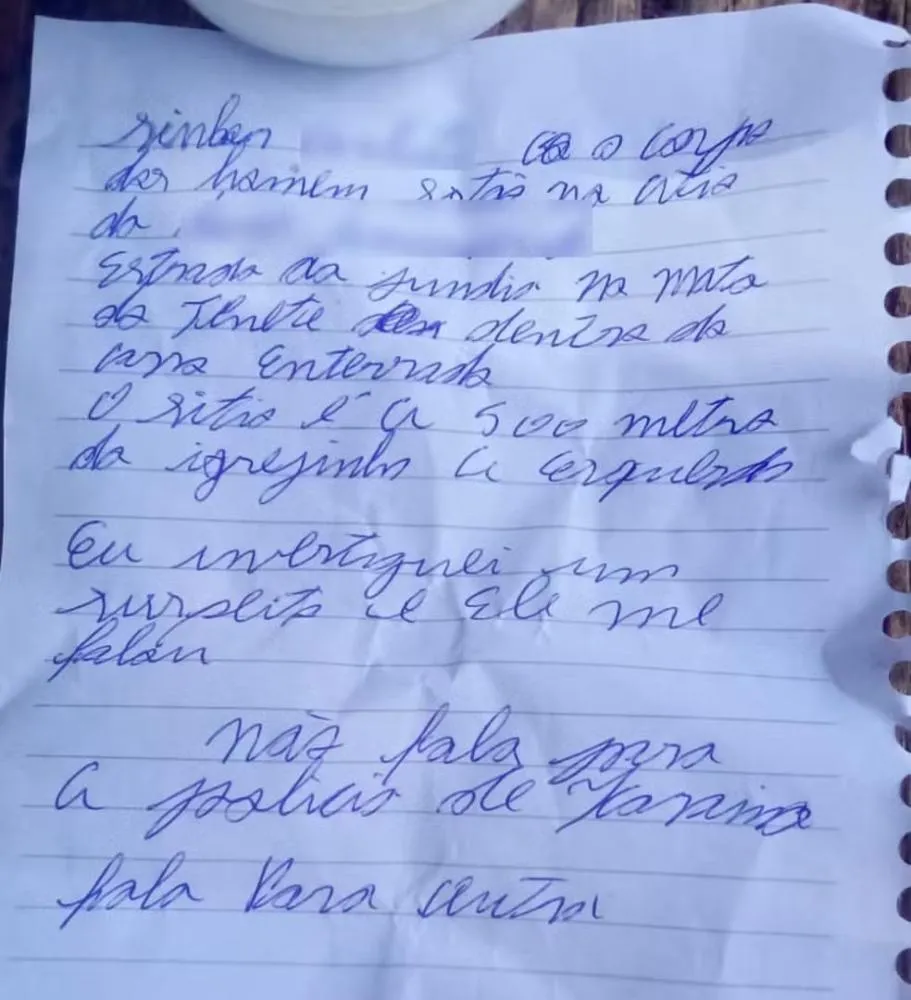 sinhor
o corpo
dos homem estão na area
da
Estrada da jundia na mata
da Tenete dentra da
casa Enterrada
O sitio é a 500 metros
da igrejinha a esquerda
Eu investiguei um
surpeito e Ele me
falou
Não fala para
a policia de Icaraima
fala Para outra